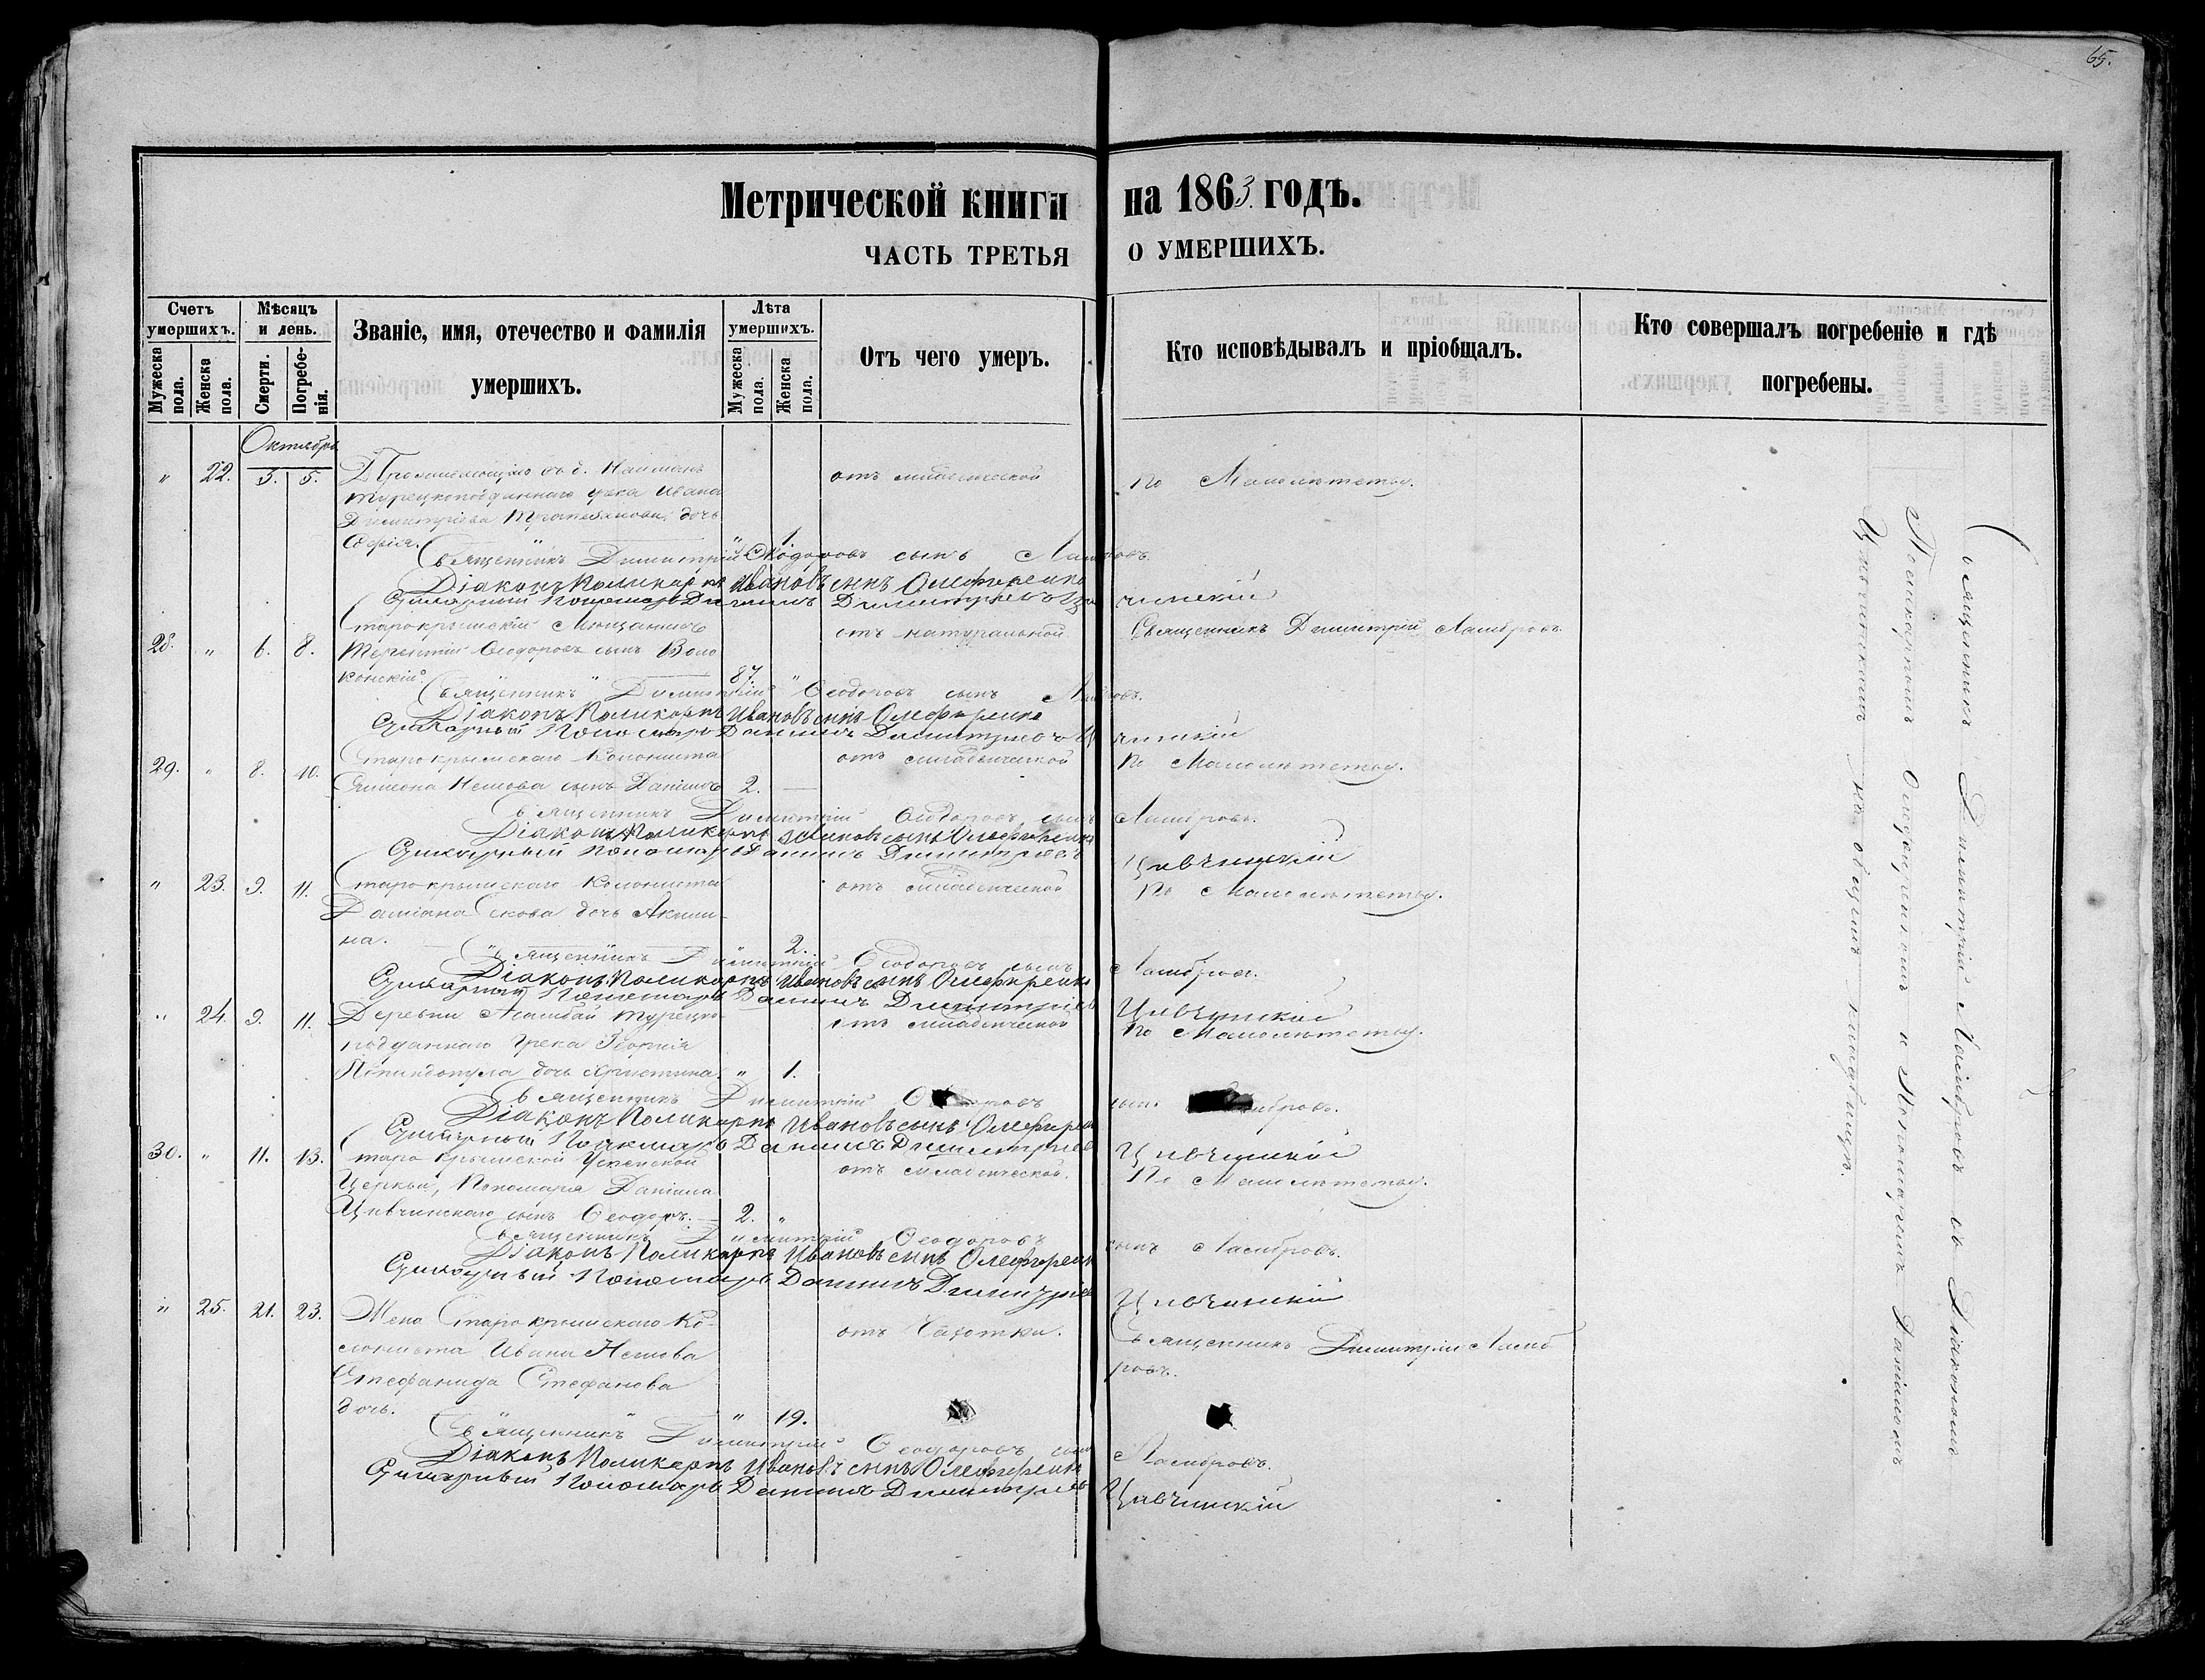 65.
Метрической книги на 1863 годъ.
ЧАСТЬ ТРЕТЬЯ О УМЕРШИХЪ.
Счетъ умершихъ.
Мужеска пола.
Женска пола.
Мѣсяцъ и день.
Смерти.
Погребенія.
Званіе, имя, отечество и фамилія умершихъ.
Лѣта умершихъ.
Мужеска пола.
Женска пола.
Отъ чего умеръ.
Кто исповѣдывалъ и пріобщалъ.
Кто совершалъ погребеніе и гдѣ погребены.
Октябрь
" 22. 3. 5. Проживающаго въ д. Найманъ отъ младенческой по Малолѣтству.
турецкоподданнаго грека Ивана
Димитріева дочь
Софія. " 1.
Священникъ Димитрій Ѳеодоровъ сынъ Ламбровъ.
Діаконъ Поликарпъ Ивановъ сынъ Олефиренко
Пономарь Даніилъ Димитріевъ Цивчинскій
28. " 6. 8. Старокрымскій Мѣщанинъ отъ натуральной Священникъ Димитрій Ламбровъ.
Терентій Ѳеодоровъ сынъ Воло
конскій. 87. "
Священникъ Димитрій Ѳеодоровъ сынъ Ламбровъ.
Діаконъ Поликарпъ Ивановъ сынъ Олефиренко
Пономарь Даніилъ Димитріевъ Цивчинскій
29. " 8. 10. Старокрымскаго Колониста отъ младенческой По Малолѣтству.
Симеона Нешова сынъ Даніилъ 2. —
Священникъ Димитрій Ѳеодоровъ сынъ Ламбровъ.
Діаконъ Поликарпъ Ивановъ сынъ Олефиренко
Пономарь Даніилъ Димитріевъ Цивчинскій
" 23. 9. 11. Старокрымскаго Колониста отъ младенческой По Малолѣтству.
Даміана дочь Акили-
на. " 2.
Священникъ Димитрій Ѳеодоровъ сынъ Ламбровъ.
Діаконъ Поликарпъ Ивановъ сынъ Олефиренко
Пономарь Даніилъ Димитріевъ Цивчинскій
" 24. 9. 11. Деревни турецко- отъ младенческой По Малолѣтству.
подданнаго грека Георгія
дочь Христина. " 1.
Священникъ Димитрій Ѳеодоровъ сынъ Ламбровъ.
Діаконъ Поликарпъ Ивановъ сынъ Олефиренко
Пономарь Даніилъ Димитріевъ Цивчинскій
30. " 11. 13. Старокрымской Успенской отъ младенческой. По Малолѣтству.
Церкви, Пономаря Даніила
Цивчинскаго сынъ Ѳеодоръ. 2. "
Священникъ Димитрій Ѳеодоровъ сынъ Ламбровъ.
Діаконъ Поликарпъ Ивановъ сынъ Олефиренко
Пономарь Даніилъ Димитріевъ Цивчинскій
" 25. 21. 23. Жена Старокрымскаго Ко- отъ Чахотки. Священникъ Димитрій Ламб
лониста Ивана Нешова ровъ.
Стефанида Стефанова
дочь. " 19.
Священникъ Димитрій Ѳеодоровъ сынъ Ламбровъ.
Діаконъ Поликарпъ Ивановъ сынъ Олефиренко
Пономарь Даніилъ Димитріевъ Цивчинскій
Священникъ Димитрій Ламбровъ съ Діакономъ
Поликарпомъ Олефиренкомъ и Пономаремъ Даніиломъ
Цивчинскимъ на общемъ кладбищѣ.